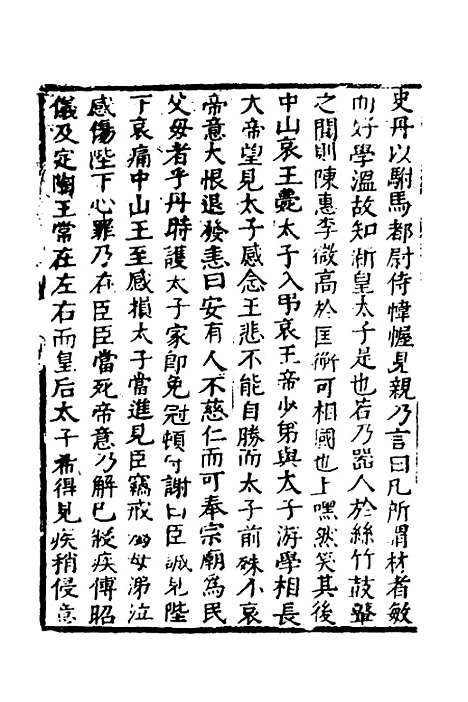 史丹以駙馬都尉侍幃幄見親乃言曰凡所謂材者敏
而好學溫故知新皇太子是也若乃器人於絲竹鼓鼙
之間則陳惠李微高於匡衡可相國也上嘿然笑其後
中山哀王薨太子入弔哀王帝少弟與太子游學相長
大帝望見太子感念王悲不能自勝而太子前殊不哀
帝意大恨退發恚曰安有人不慈仁而可奉宗廟爲民
父母者乎丹時護太子家卽免冠頓首謝曰臣誠見陛
下哀痛中山王至感損太子當進見臣竊戒毋涕泣
感傷陛下心罪乃在臣臣當死帝意乃解已疾傅昭
儀及定陶王常在左右而皇后太子希得見疾稍侵意